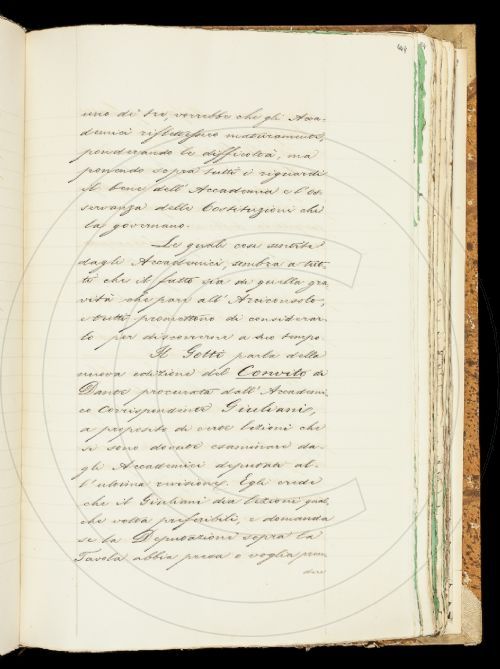 uno di tre vorrebbe che gli Acca-
demici riflettessero maturamente,
ponderando le difficoltà, ma
ponendo sopra tutti i riguardi
il bene dell'Accademia e l'os-
servanza delle Costituzioni che
la governano.
Le quali cose sentite
dagli Accademici, sembra a tut-
ti che il fatto sia di quella gra-
vità che pare all'Arciconsolo,
e tutti promettono di considerar-
lo per discorrerne a suo tempo.
Il Gotti parla della
nuova edizione del Convito di
Dante procurata dall'Accademi-
co Corrispondente Giuliani,
a proposito di certe lezioni che
si sono dovute esaminare da-
gli Accademici deputati al-
l'ultima revisione. Egli crede
che il Giuliani dia lezioni qual-
che volta preferibili, e domanda
se la Deputazione sopra la
Tavola abbia presa o voglia pren-
dere